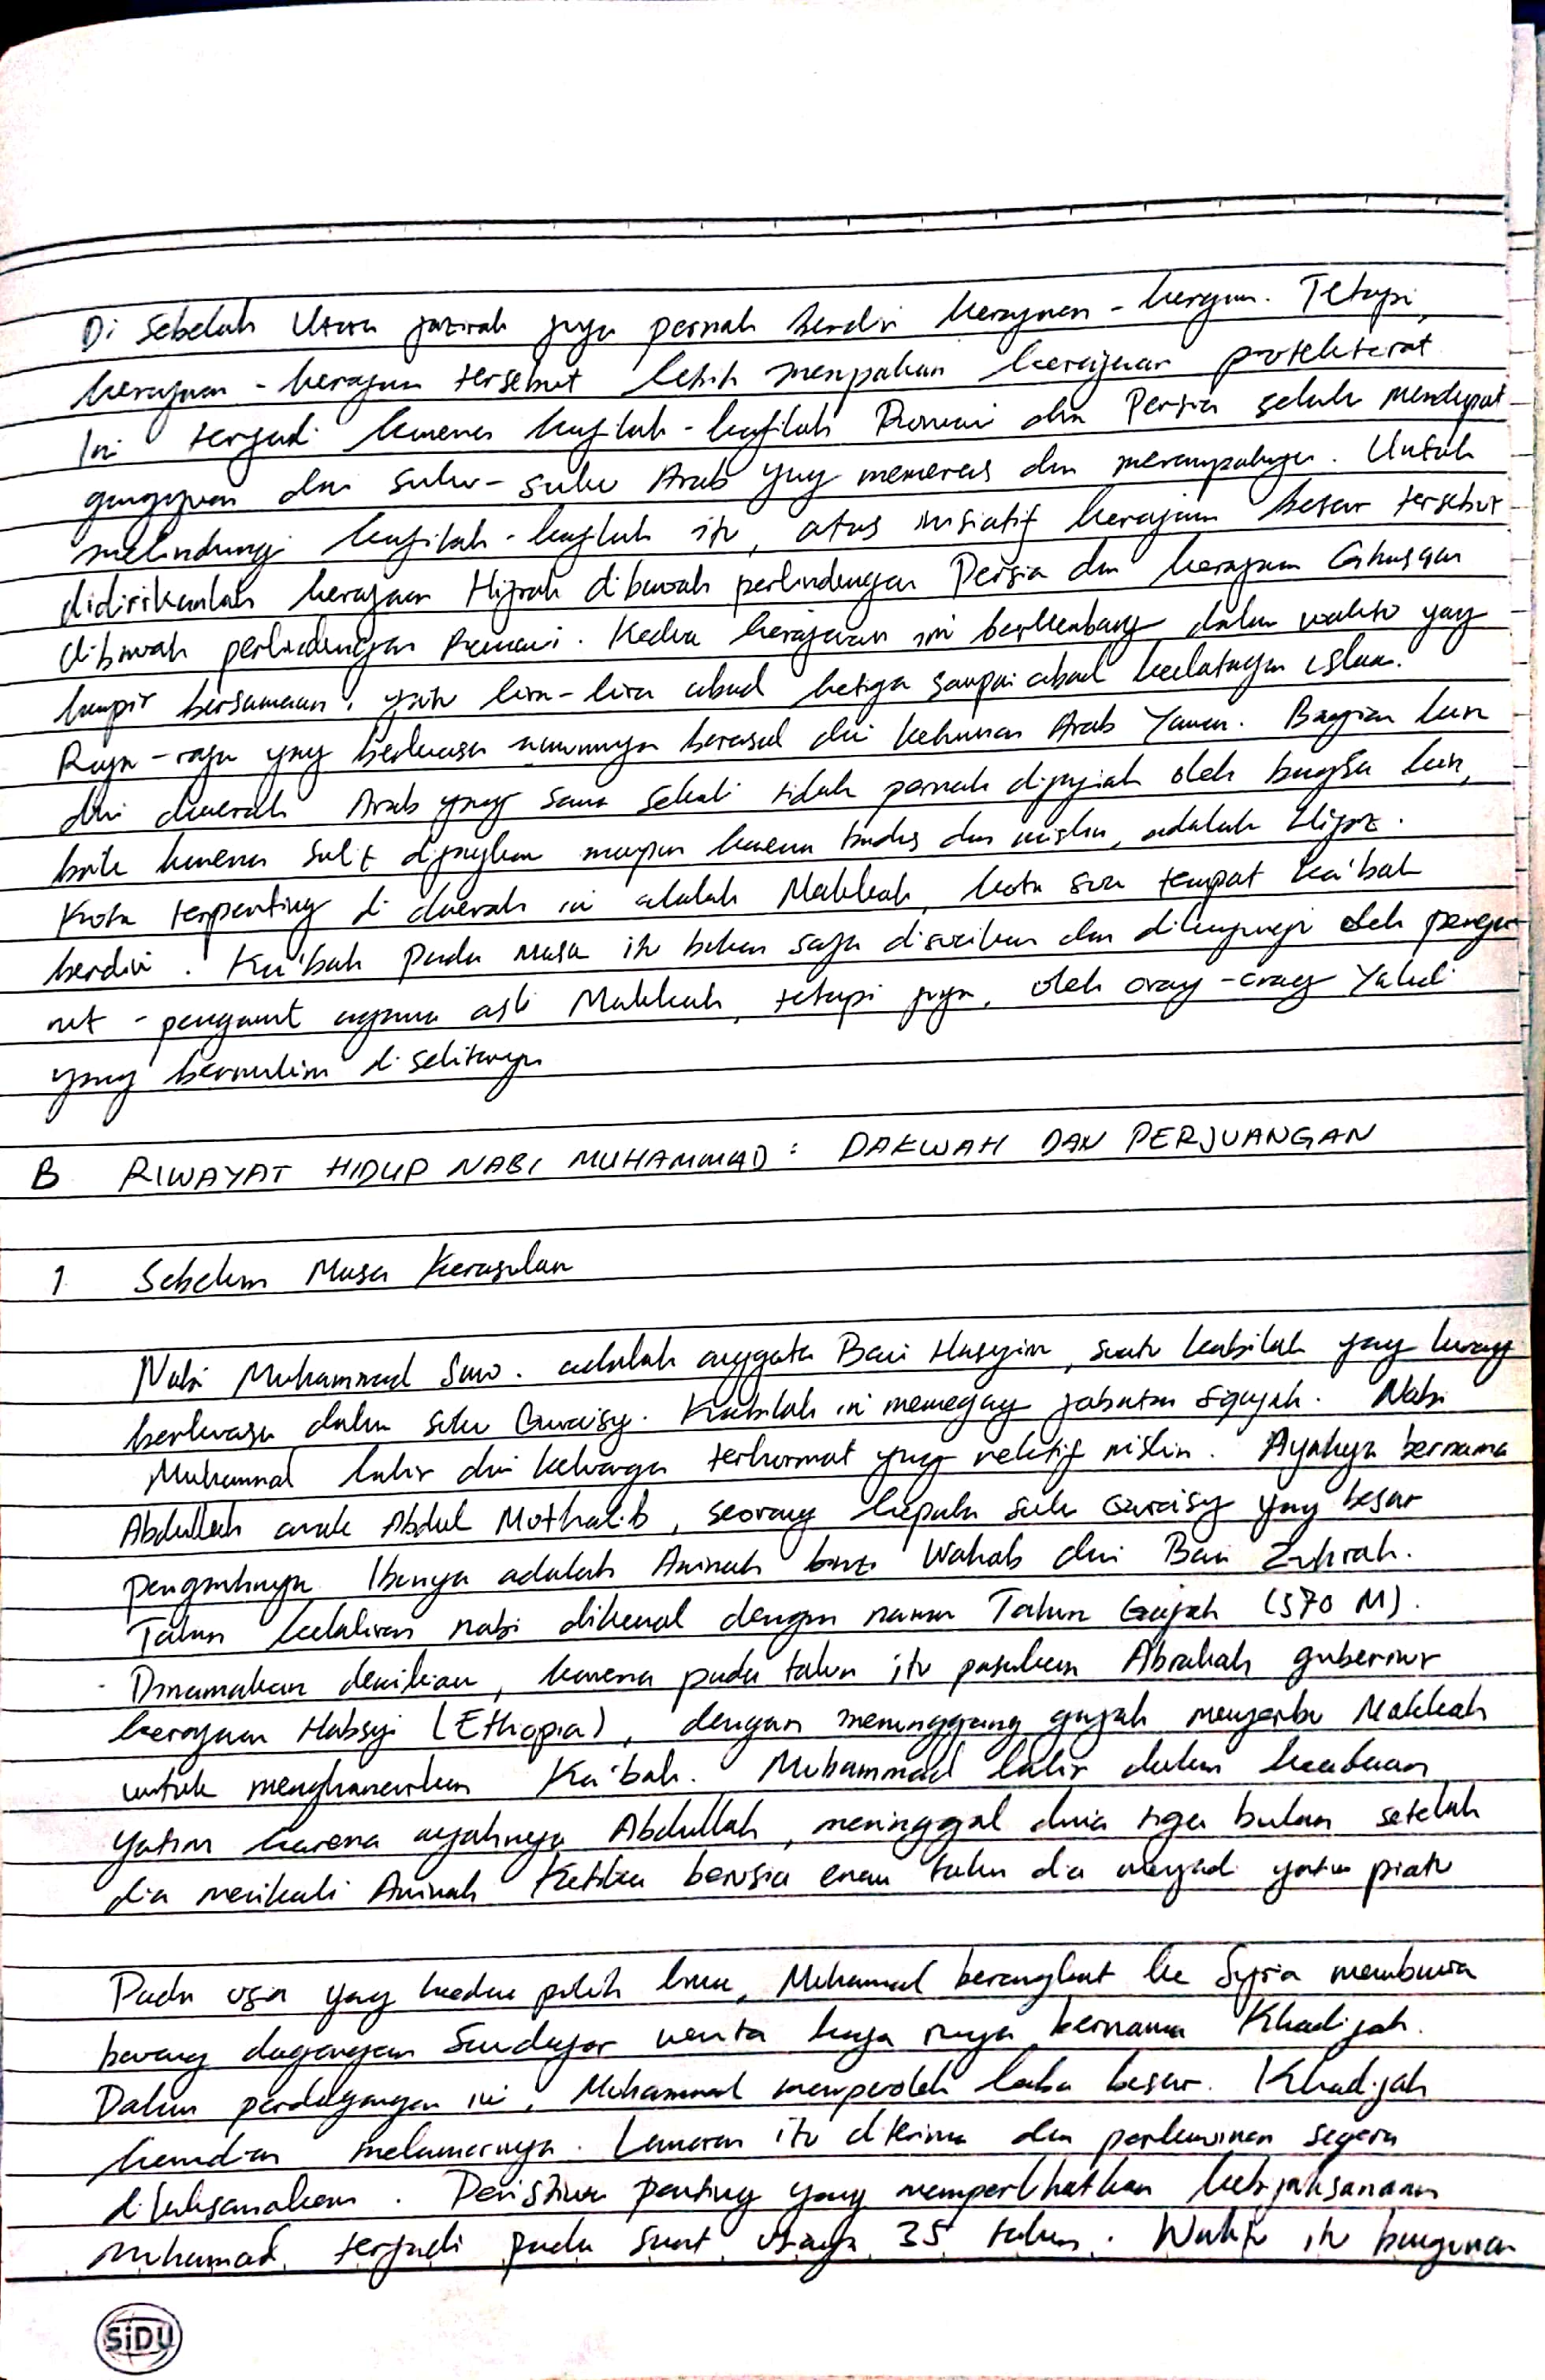 Di sebelah Utara jazirah juga pernah berdiri kerajaan - kerajaan. Tetapi,
kerajaan - kerajaan tersebut lebih merupakan kerajaan protektorat
Ini terjadi karena kafilah - kafilah Romawi dan Persia selalu mendapat
gangguan dari suku - suku Arab yang memeras dan merampoknya. Untuk
melindungi kafilah - kafilah itu, atas inisiatif kerajaan besar tersebut
didirikanlah kerajaan Hijrah dibawah perlindungan Persia dan kerajaan Ghassan
dibawah perlindungan Romawi. Kedua kerajaan ini berkembang dalam waktu yang
hampir bersamaan, yaitu kira-kira abad ketiga sampai abad kedatangan islam.
Raja - raja yang berkuasa umumnya berasal dari keturunan Arab Yaman. Bagian lain
dari daerah Arab yang sama sekali tidak pernah dijajah oleh bangsa lain,
baik karena sulit dijangkau maupun karena tandus dan miskin, adalah Hijaz.
Kota terpenting di daerah ini adalah Makkah, kota suci tempat Ka'bah
berdiri. Ka'bah pada masa itu bukan saja disucikan dan dikunjungi oleh penga
nut - penganut agama asli Makkah, tetapi juga, oleh orang - orang Yahudi
yang bermukim di sekitarnya
B RIWAYAT HIDUP NABI MUHAMMAD : DAKWAH DAN PERJUANGAN
1 Sebelum Masa Kerasulan
Nabi Muhammad Saw. adalah anggota Bani Hasyim, suatu kabilah yang kurang
berkuasa dalam suku Quraisy. Kabilah ini memegang jabatan siqayah. Nabi
Muhammad lahir dari keluarga terhormat yang relatif miskin. Ayahnya bernama
Abdullah anak Abdul Mothalib, seorang kepala suku Quraisy yang besar
pengaruhnya. Ibunya adalah Aminah binti Wahab dari Bani Zuhrah.
Tahun kelahiran nabi dikenal dengan nama Tahun Gajah (570 M).
Dinamakan demikian, karena pada tahun itu pasukan Abrahah gubernur
kerajaan Habsyi (Ethopia), dengan menunggang gajah menyerbu Makkah
untuk menghancurkan Ka'bah. Muhammad lahir dalam keadaan
yatim karena ayahnya Abdullah, meninggal dunia tiga bulan setelah
dia menikahi Aminah Ketika berusia enam tahun dia menjadi yatim piatu
Pada usia yang kedua puluh lima, Muhamad berangkat ke Syria membawa
barang dagangan Saudagar wanita kaya raya bernama Khadijah.
Dalam perdagangan ini, Muhammad memperoleh laba besar. Khadijah
kemudian melamarnya. Lamaran itu diterima dan perkawinan segera
dilaksanakan. Peristiwa penting yang memperlihatkan kebijaksanaan
Muhamad terjadi pada saat usianya 35 tahun. Waktu itu bangunan
SiDU